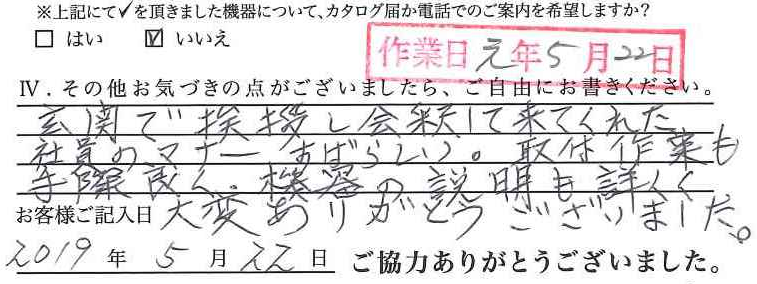 ※上記にて✓を頂きました機器について、カタログ届か電話でのご案内を希望しますか?
□ はい ☑ いいえ
作業日 元年5月22日
Ⅳ.その他お気づきの点がございましたら、ご自由にお書きください。
玄関で挨拶し会釈して来てくれた
社員のマナーすばらしい。取付作業も
手際良く、機器の説明も詳しく
お客様ご記入日 大変ありがとうございました。
2019 年 5 月 22 日 ご協力ありがとうございました。